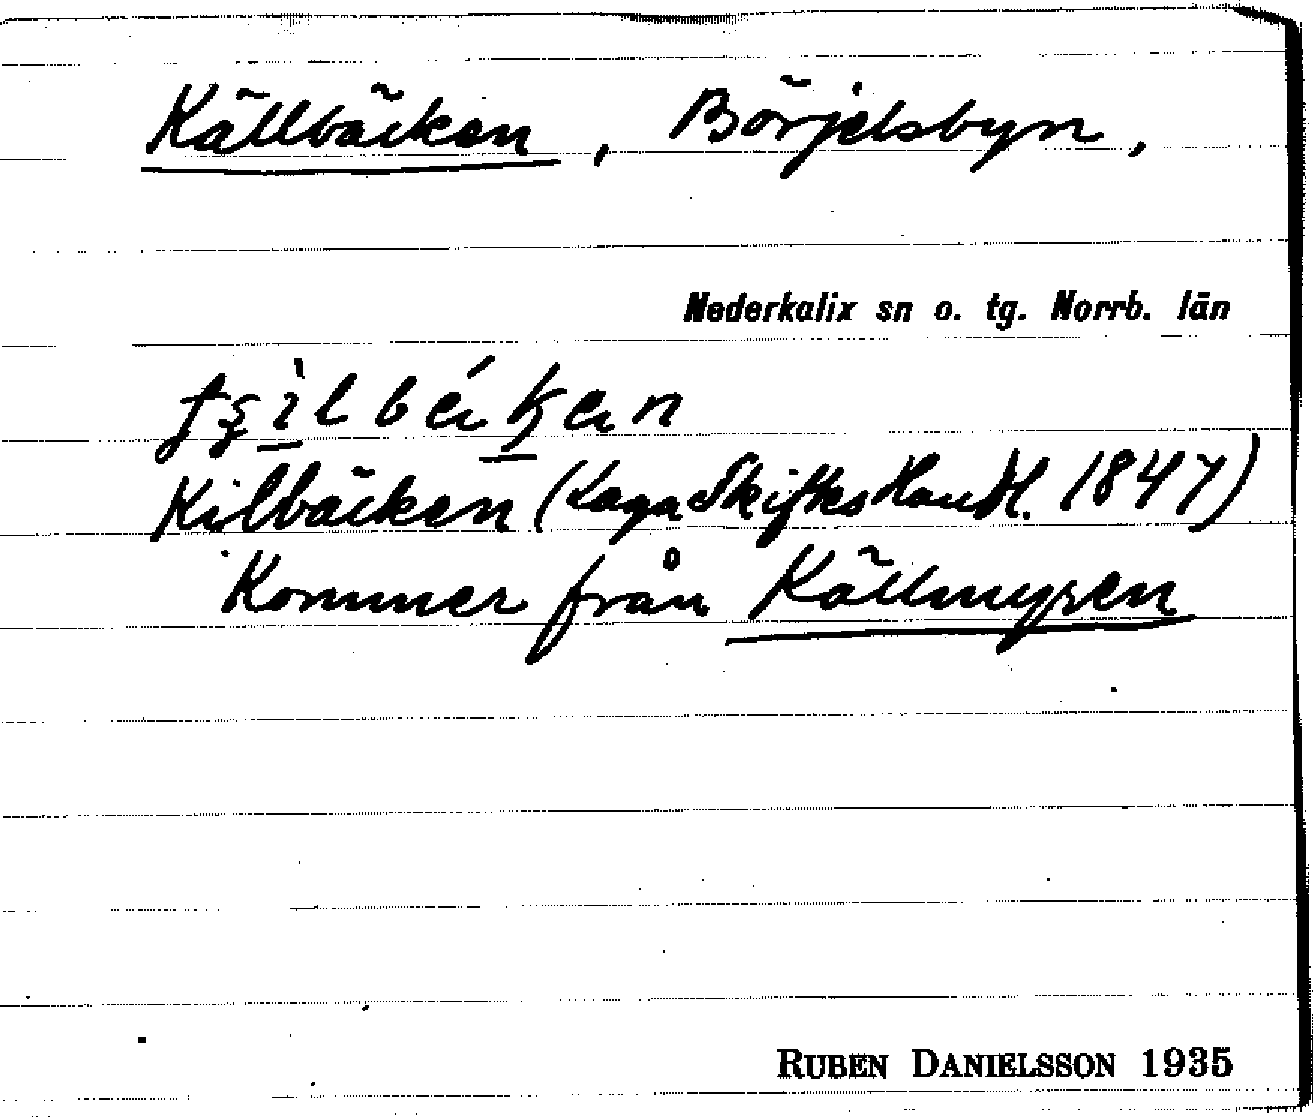 Källbäcken, Börjelsbyn,
Nederkalix sn o. tg. Norrb. län
Kilbäcken (Laga Skiftes Handl. 1847)
Kommer från Källmyren
RUBEN DANIELSSON 1935